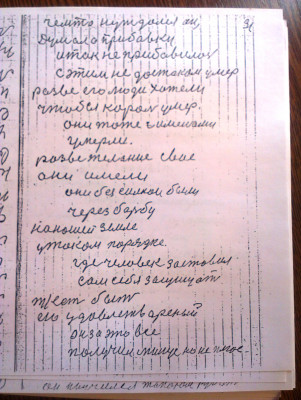 чемто нуждался он 31
думало прибавки
и так не прибавилос
с этим не достатком умер
разве его люди хотели
чтобы королем умер.
они тоже с именами
умерли.
разве желание свое
они имели
они без силной были
через барбу
на нашей земле
у таком порядке.
где человек заставил
сам себя защищат
может быт
его удовлетвареный
он за это все
получил лише на не много
он научился